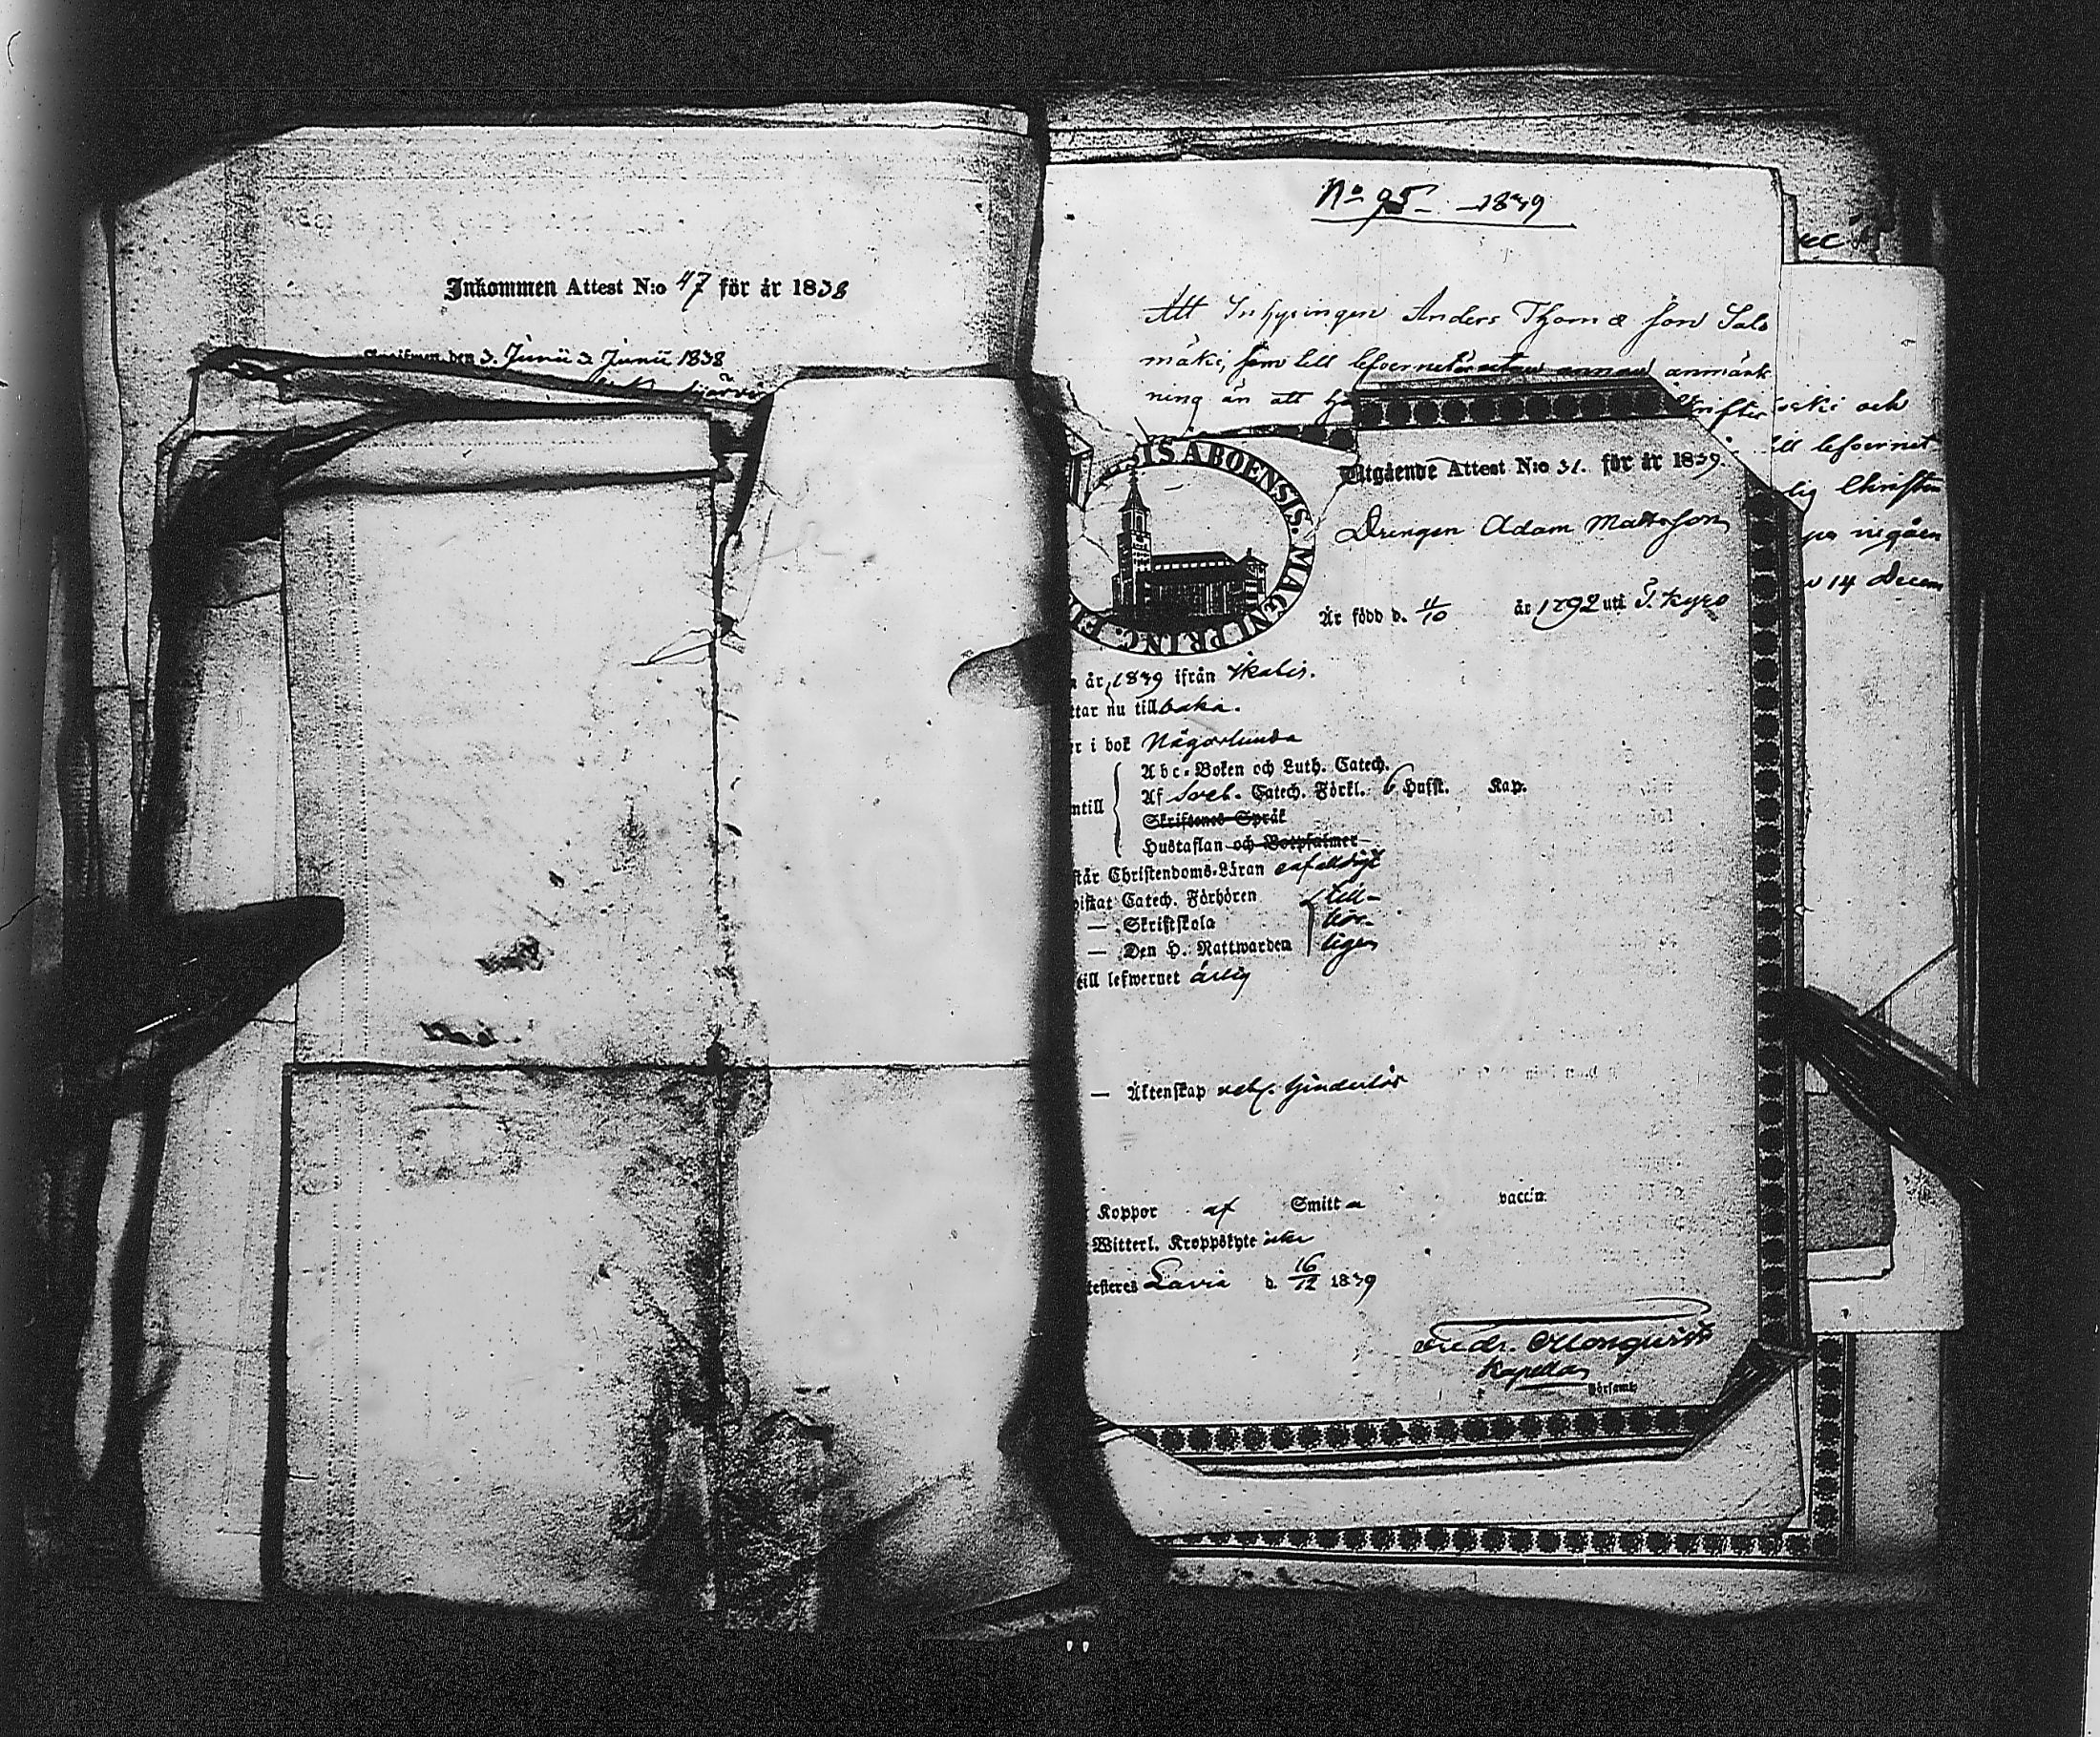 Inkommen Attest N:o 47 för år 1838
den 3. Junii 3 Junii 1838
No 95 1839
Att Inhysingen Anders Thomæ son Salo
mäki, som till lefvernet annan anmärk
ning än att
Skrifter
och
till lefvernet
lig Christen
14 Decem
IS ABOENSIS. MAGNI PRINC. FI
Utgående Attest N:o 31. för år 1839.
Drengen Adam Mattsson
Är född d. 11/10 år 1792 uti T. Kyro
år 1839 ifrån Ikalis.
ttar nu tillbaka.
r i bok Någorlunda
ntill
Abc-Boken och Luth. Catech.
Af Sveb. Catech. Förkl. 6 Hufst. Kap.
Skriftenes Språk
Hustaflan och Botpsalmer
står Christendoms-Läran enfaldigt
wistat Catech. Förhören till-
— Skriftskola bör-
— Den H. Nattwarden ligen
till lefwernet ärlig
— Äktenskap hinderlös
Koppor af Smitta vaccin
Witterl. Kroppslyte icke
testeres Lavia d. 16/12 1839
Fredr. Monquist
Kapellan
Församl.